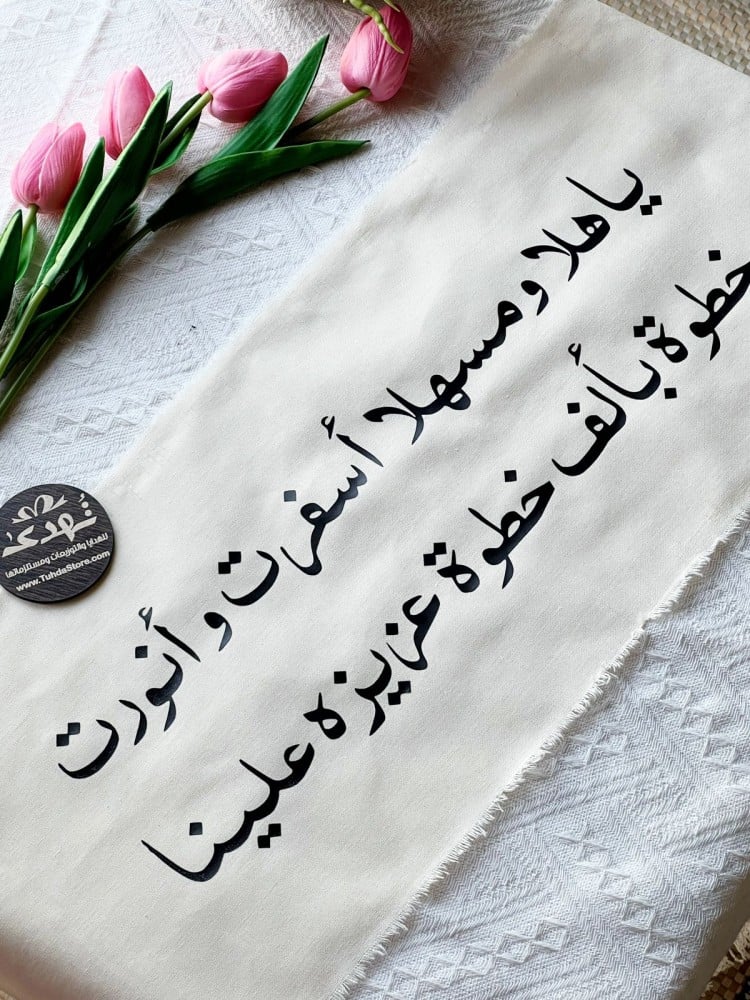 يا هلا ومسهلا أسفرت وأنورت
خطوة بألف خطوة عزيزه علينا
تُهدى
للهدايا والتوزيعات ومستلزماتها
www.TuhdaStore.com